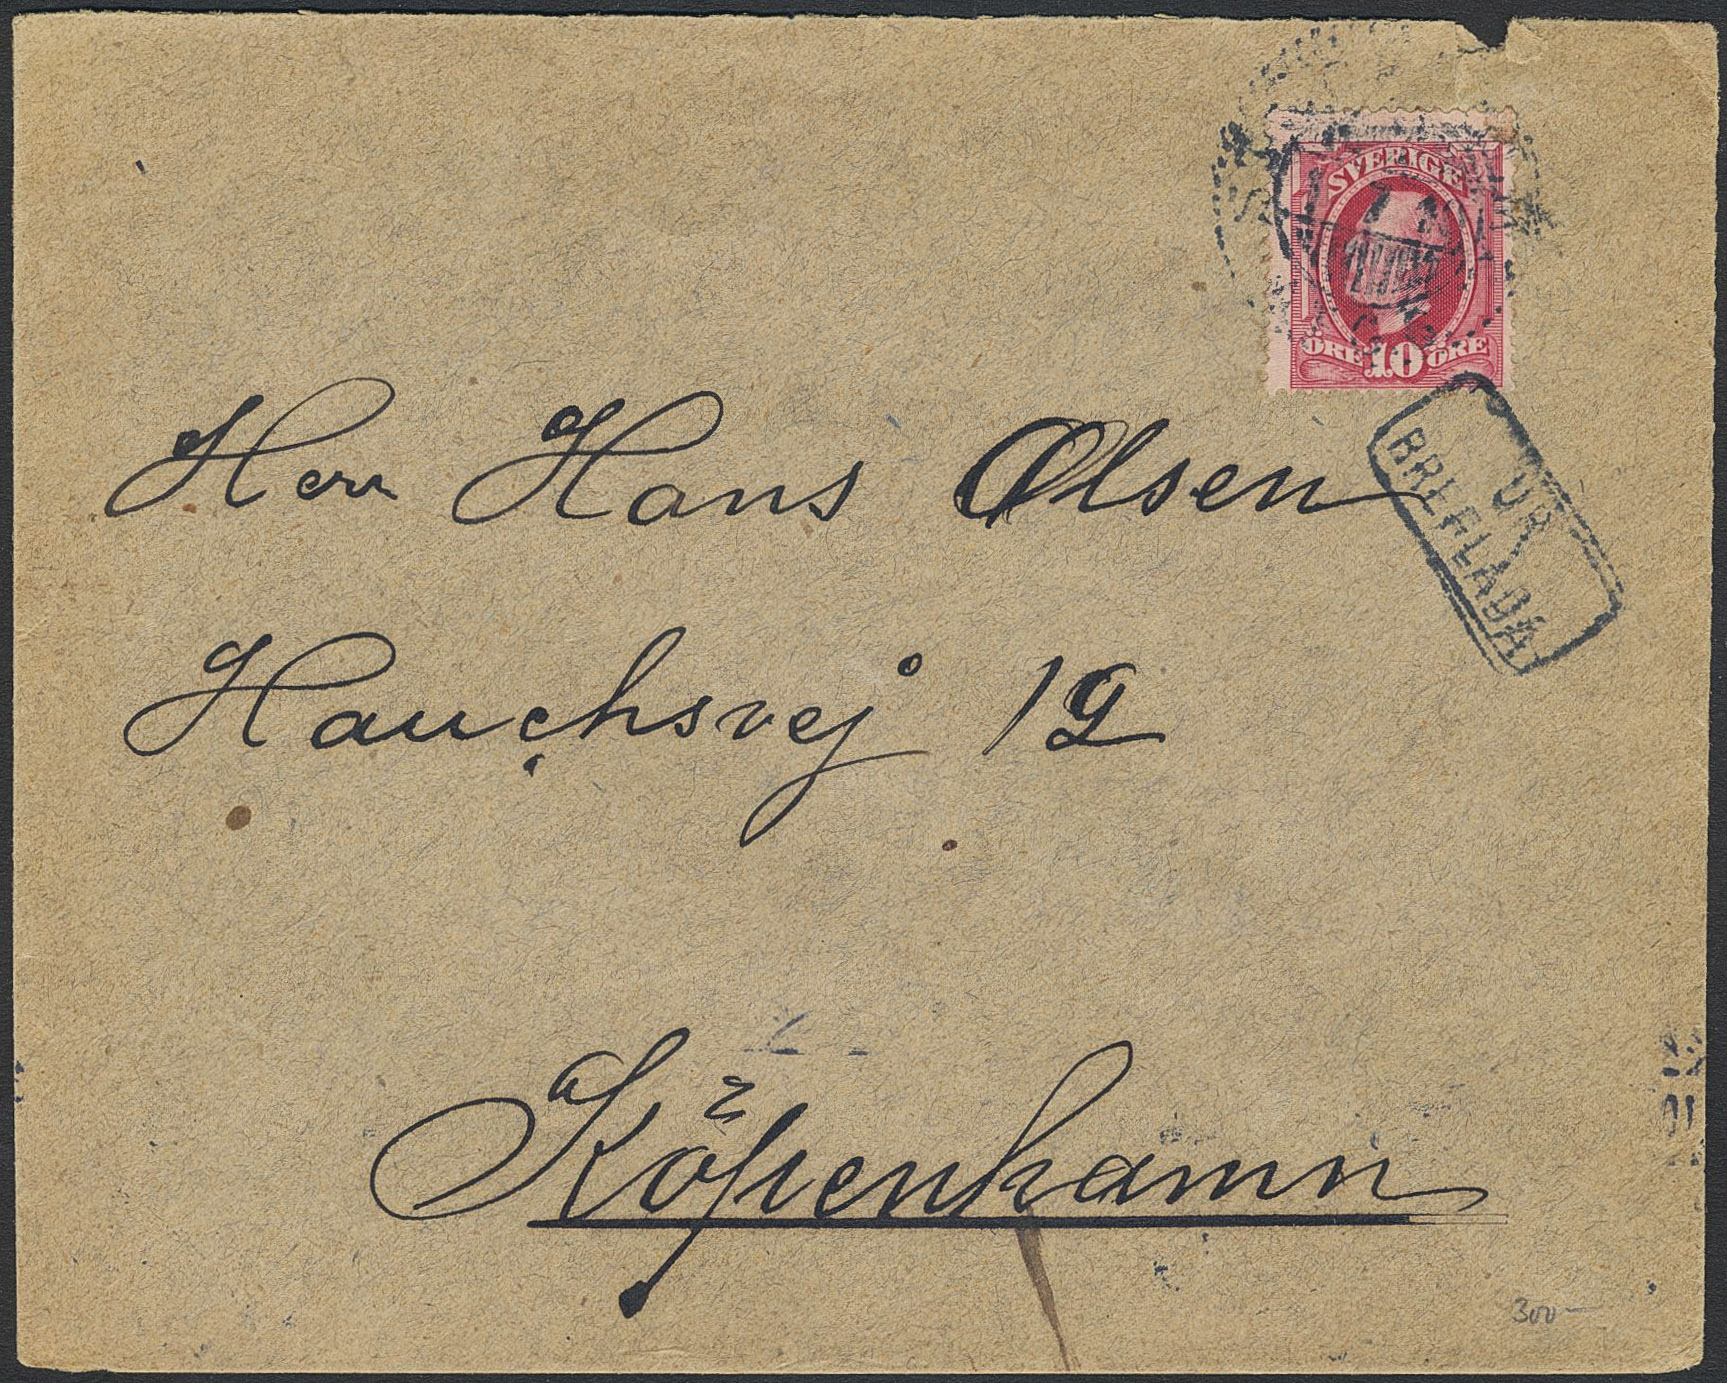 SVERIGE
ÖRE 10 ÖRE
UR
BREFLÅDA
Herr Hans Ølsen
Hauchsvej 19
Köpenhamn
300-